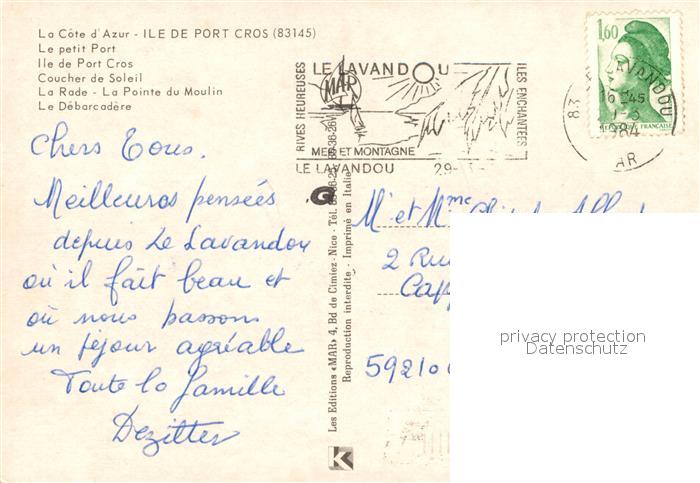 La Côte d'Azur - ILE DE PORT CROS (83145)
Le petit Port
Ile de Port Cros
Coucher de Soleil
La Rade - La Pointe du Moulin
Le Débarcadère
Chers Tous.
Meilleures pensées
depuis Le Lavandou
où il fait beau et
où nous passons
un séjour agréable
Toute la famille
Dezitter
RIVES HEUREUSES
LE LAVANDOU
ILES ENCHANTEES
MER ET MONTAGNE
LE LAVANDOU
29-
Les Editions «MAR» 4, Bd de Cimiez - Nice - Tél.
Reproduction interdite - Imprimé en Italie
MAR
K
1,60
LAVANDOU
83
16 H 45
1984
VAR
M' et Mme
2 Rue
Capp
59210
privacy protection
Datenschutz